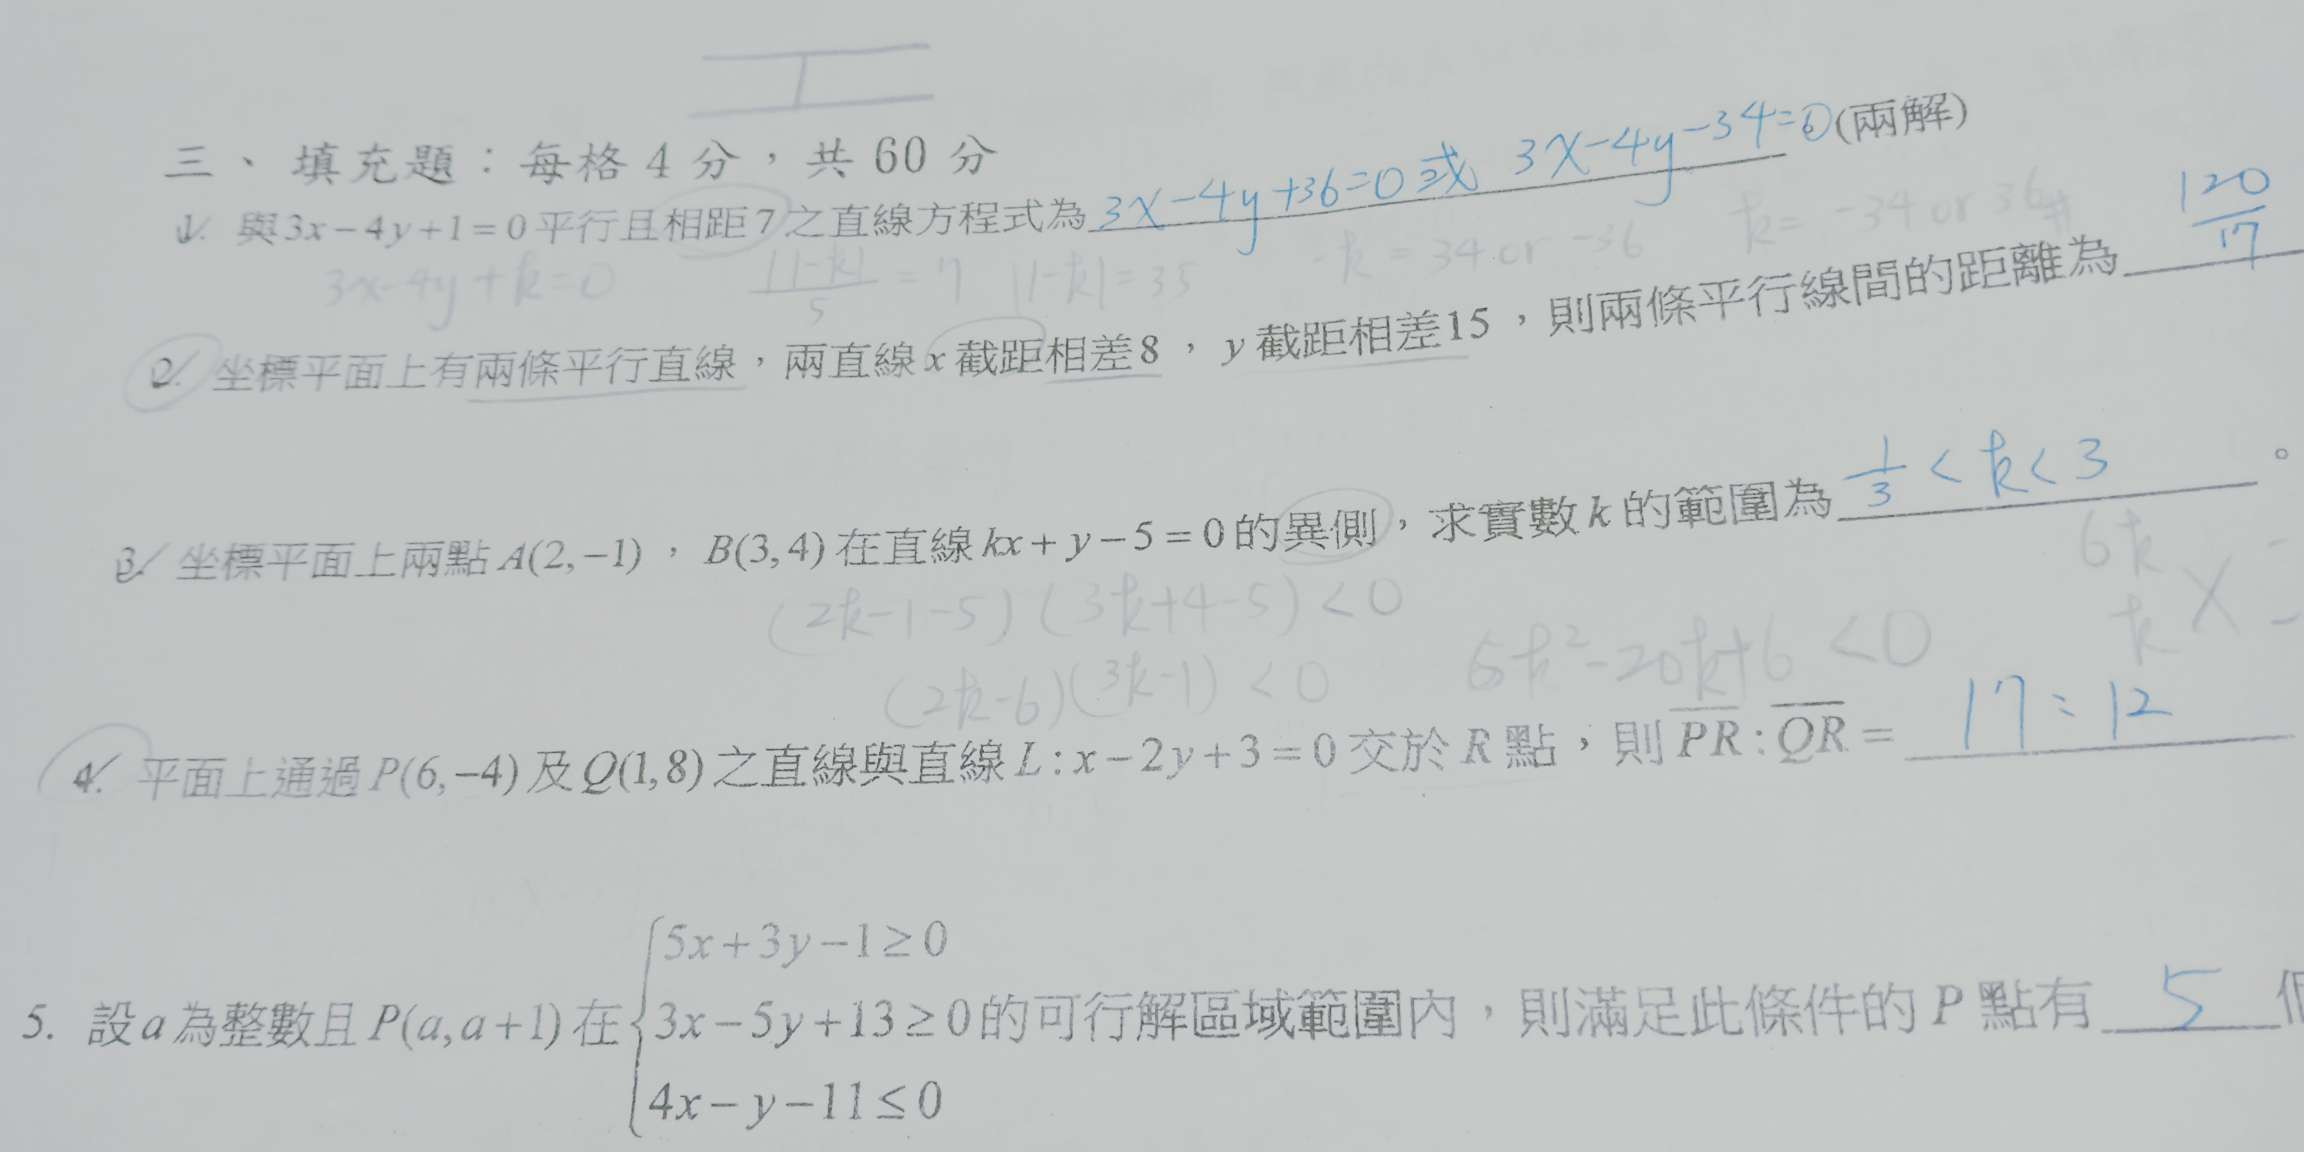 三、填充題：每格 4 分，共 60 分
1. 與3x-4y+1=0平行且相距7之直線方程式為3x-4y+36=0或 3x-4y-34=0(兩解)
3x-4y+k=0 |1-k|/5=7 |1-k|=35 -k=34 or -36 k=-34 or 36#
2. 坐標平面上有兩條平行直線，兩直線x截距相差8，y截距相差15，則兩條平行線間的距離為 120/17
3. 坐標平面上兩點A(2,-1)，B(3,4)在直線kx+y-5=0的異側，求實數k的範圍為 1/3<k<3 。
(2k-1-5)(3k+4-5)<0
(2k-6)(3k-1)<0 6k²-20k+6<0
6k
k
4. 平面上通過P(6,-4)及Q(1,8)之直線與直線L:x-2y+3=0交於R點，則PR:QR= 17:12
5. 設a為整數且P(a,a+1)在{5x+3y-1≥0
3x-5y+13≥0的可行解區域範圍內，則滿足此條件的P點有 5
4x-y-11≤0